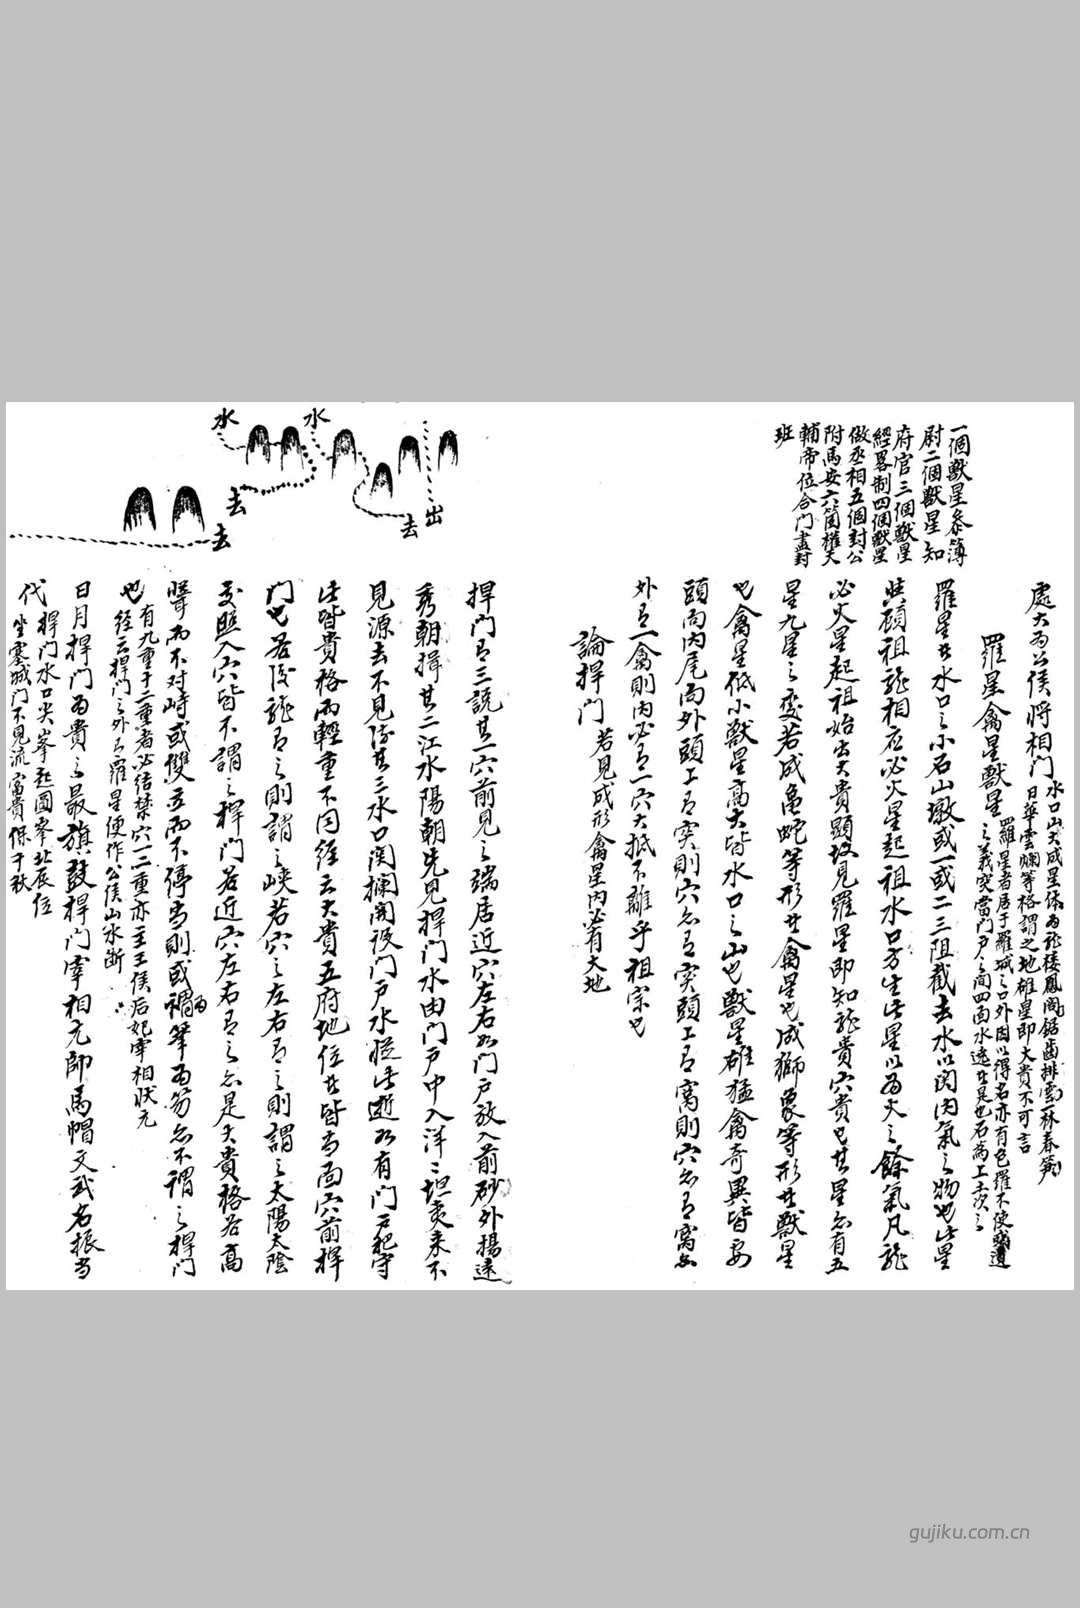 一個獸星參簿
尉二個獸星知
府官三個獸星
經畧制四個獸星
做丞相五個封公
附馬安六箇權天
輔帝位合門盡封
班
處大为公侯將相門
水口山大成星体为龍楼鳳阁鋸齒排雲一林春笋
日華雲爛等格謂之地雄星即大貴不可言
羅星禽星獸星
羅星者居于羅城之口外因以得名亦有包羅不使
之義突當門戶之间四面水遶者是也石為上土次之
羅星者水口之小石山墩或一或二三阻截去水以闭内氣之物也此星
與頑祖龍相应必火星起祖水口方生此星以为火之餘氣凡龍
必火星起祖始出大貴顕故見羅星即知龍貴穴貴也其星亦有五
星九星之变若成亀蛇等形者禽星也成獅象等形者獸星
也禽星低小獸星高大皆水口之山也獸星雄猛禽奇異皆要
頭向内尾向外頭上有突則穴亦有突頭上有窩則穴亦有窩
外有一禽則内必有一穴大抵不離乎祖宗也
論捍门 若見成形禽星内必有大地
捍门有三説其一穴前見之端居近穴左右如门戸放入前砂外揚遠
秀朝揖其二江水陽朝先見捍门水由门戸中入洋々坦夷来不
見源去不見流其三水口関拦開设门戸水從此逝如有门戸把守
此皆貴格而輕重不同经云大貴五府地位者皆为面穴前捍
门也若後龍有之則謂之峡若穴之左右有之則謂之太陽太陰
夹照入穴皆不謂之捍门若近穴左右有之亦是大貴格若高
聳而不对峙或雙立而不停当則或謂筆为笏亦不謂之捍门
也
有九重十二重者必结禁穴一二重亦主王侯后妃宰相状元
经云捍门之外有羅星便作公侯山水断
日月捍门为貴之最旗鼓捍门宰相元帥馬帽文武名振当
代
捍门水口尖峯起圓峯北辰位
坐塞城门不見流富貴保千秋
水
水
去
去
去
出
gujiku.com.cn